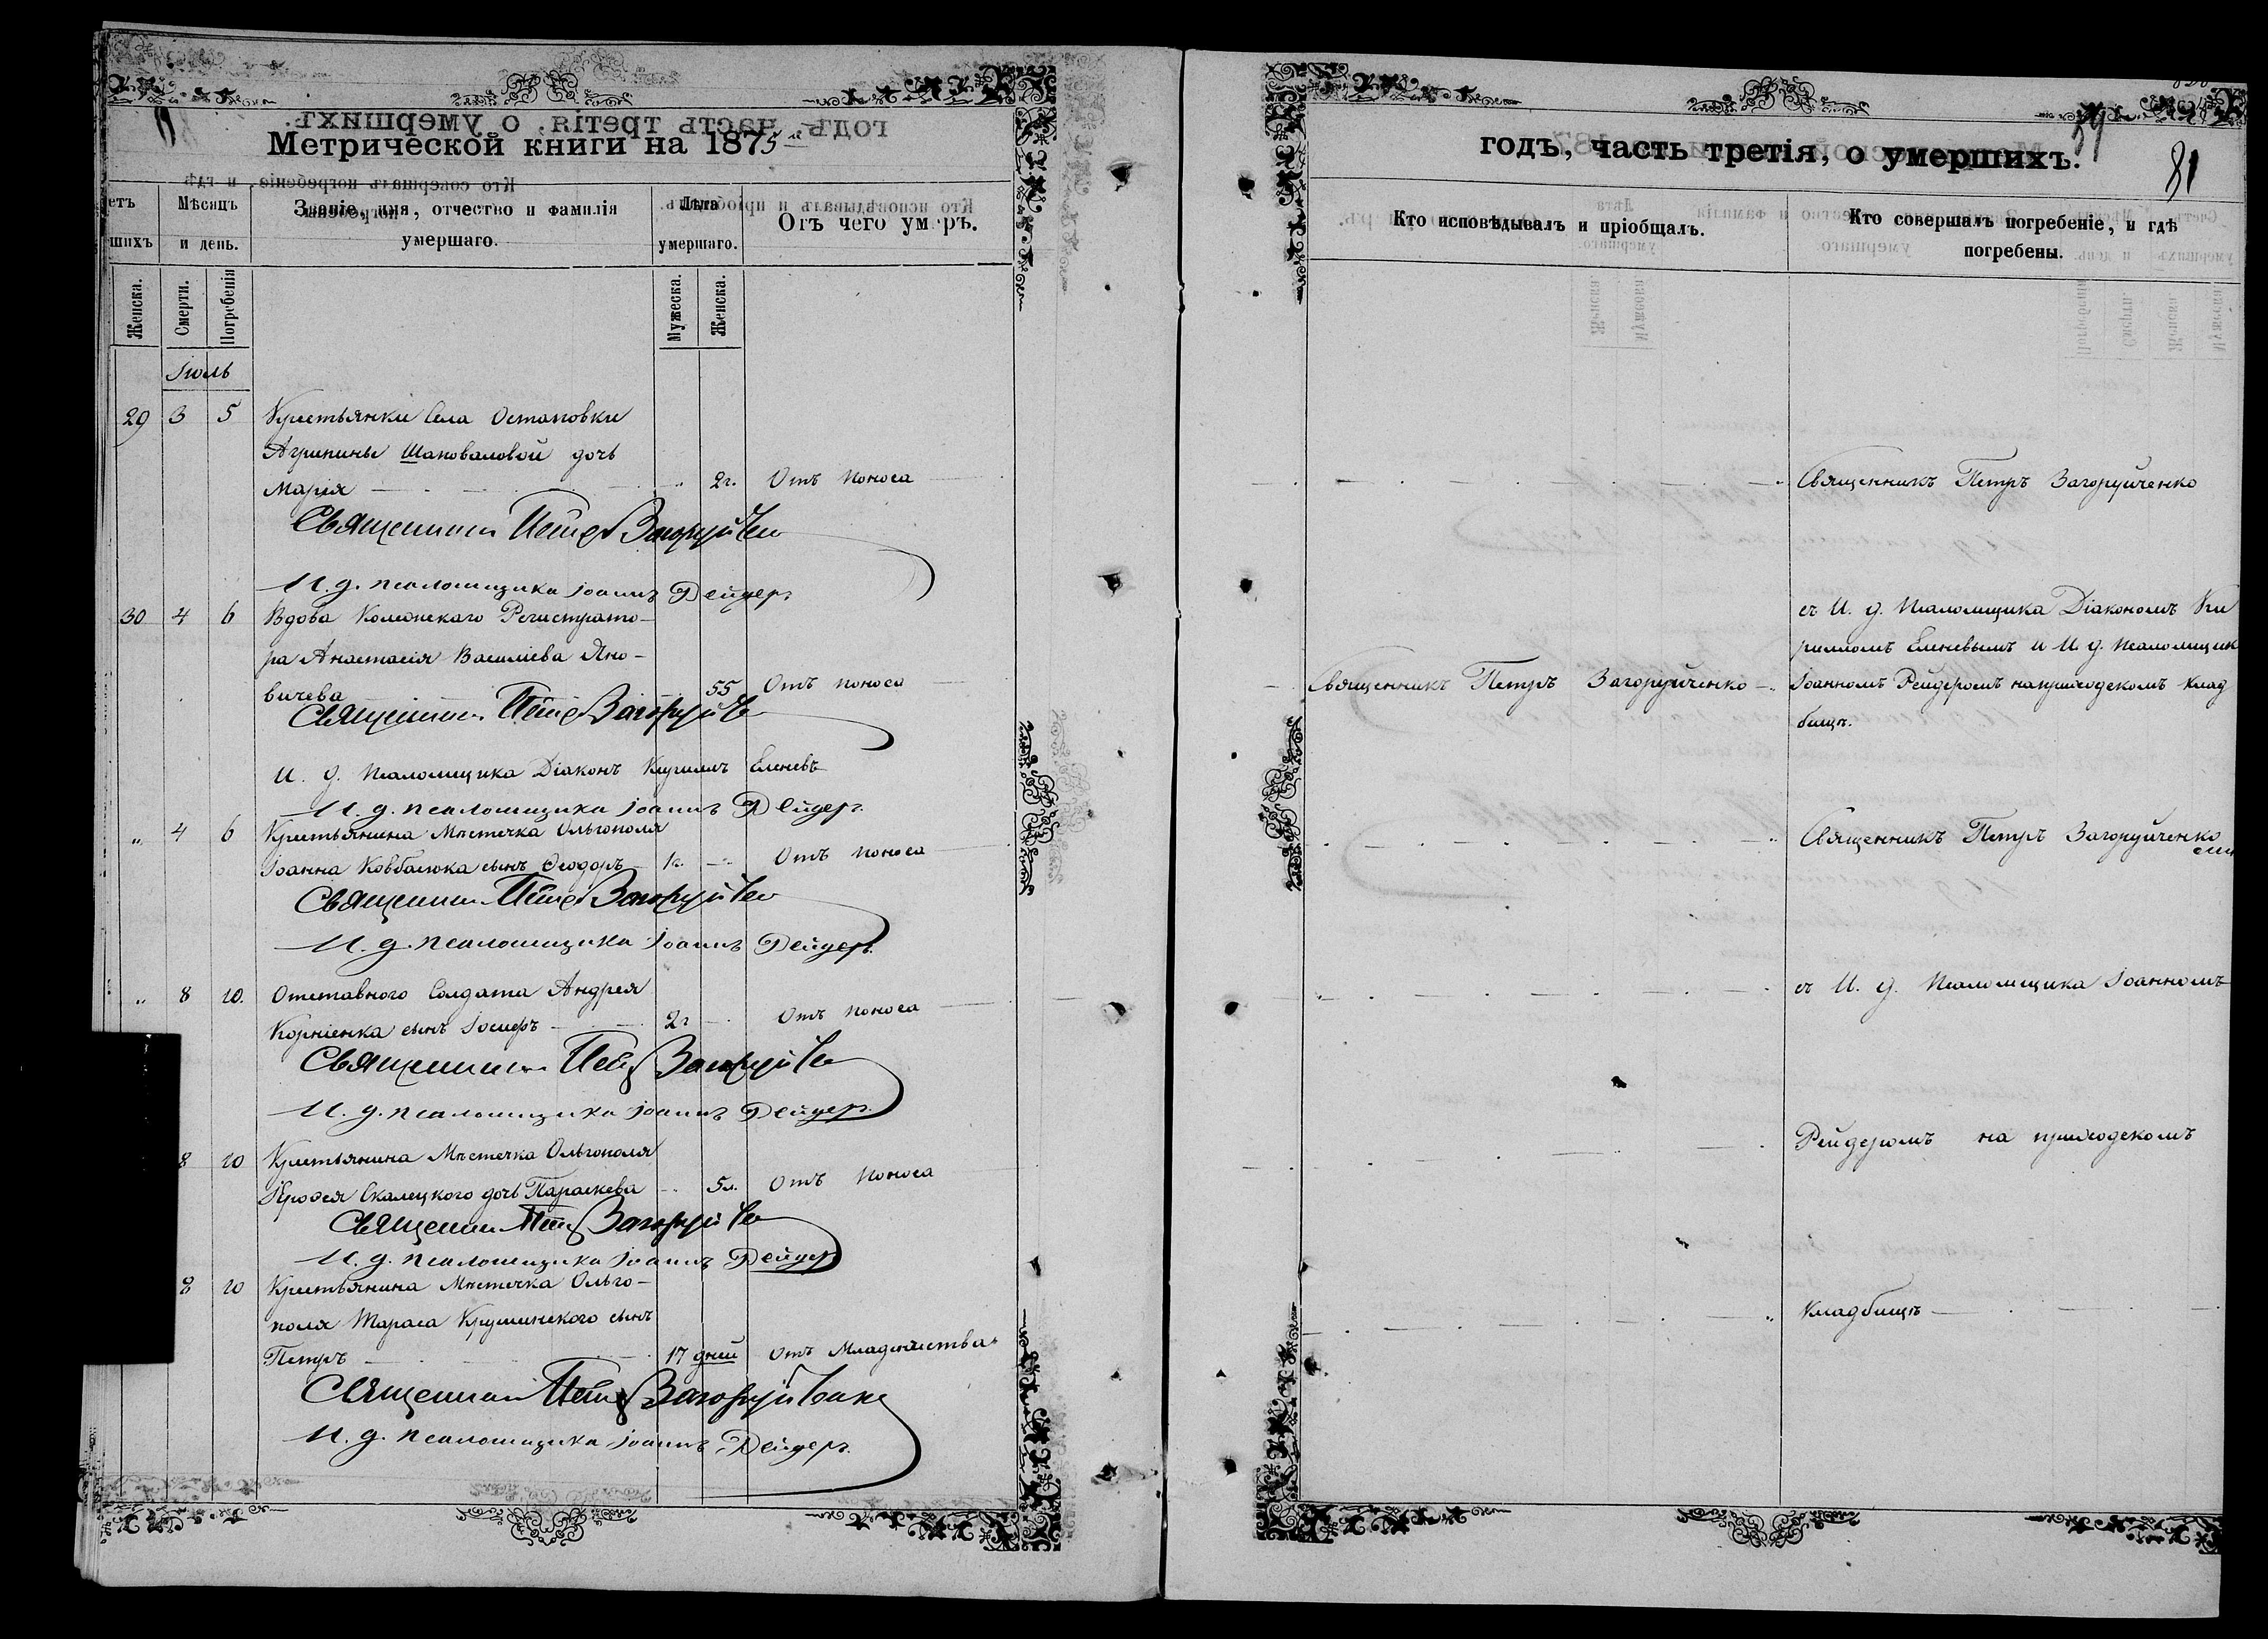 Метрической книги на 1875й
етъ
шихъ
Мѣсяцъ
и день.
Званіе, имя, отчество и фамилія
умершаго.
Лѣта
умершаго.
Отъ чего умеръ.
Женска.
Смерти.
Погребенія
Мужеска.
Женска.
Іюль
29 3 5 Крестьянки Села Остаповки
Агрипины Шаповаловой дочь
Марія 2г. Отъ поноса
Священникъ Петръ Загоруйченко
И. д. псаломщика Іоаннъ Рейдеръ
30 4 6 Вдова Колежскаго Регистрато-
ра Анастасія Василіева Яно-
вичева 55 Отъ поноса
Священникъ Петръ Загоруйченко
И. д. Псаломщика Діаконъ Кириллъ Еленевъ
И. д. псаломщика Іоаннъ Рейдеръ
„ 4 6 Крестьянина Мѣстечка Ольгополя
Іоанна Ковбасюка сынъ Ѳеодоръ 1г. Отъ поноса
Священникъ Петръ Загоруйченко
И. д. псаломщика Іоаннъ Рейдеръ
„ 8 10. Отставного Солдата Андрея
Корніенка сынъ Іосифъ 2г Отъ поноса
Священникъ Петръ Загоруйченко
И. д. псаломщика Іоаннъ Рейдеръ
8 10 Крестьянина Мѣстечка Ольгополя
Скалецкого дочь Параскева 5л. Отъ поноса
Священникъ Петръ Загоруйченко
И. д. псаломщика Іоаннъ Рейдеръ
8 10 Крестьянина Мѣстечка Ольго-
поля Тараса сынъ
Петръ 17 дней Отъ Младенчества
Священникъ Петръ Загоруйченко
И. д. псаломщика Іоаннъ Рейдеръ
годъ, часть третія, о умершихъ.
81
Кто исповѣдывалъ и пріобщалъ.
Кто совершалъ погребеніе, и гдѣ
погребены.
Священникъ Петръ Загоруйченко
съ И. д. Псаломщика Діакономъ Ки
рилломъ Еленевымъ и И. д. Псаломщик
Священникъ Петръ Загоруйченко Іоанномъ Рейдеромъ на приходскомъ клад
бищѣ.
Священникъ Петръ Загоруйченко
съ И. д. Псаломщика Іоанномъ
Рейдеромъ на приходскомъ
Кладбищѣ